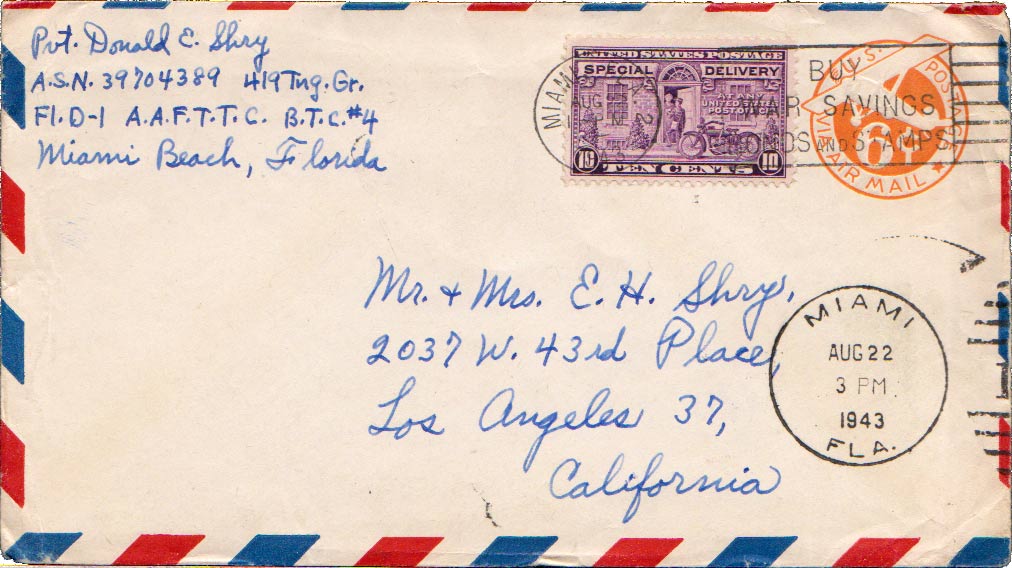 Pvt. Donald E. Shry
A.S.N. 39704389 419Tng.Gr.
Fl.D-1 A.A.F.T.T.C. B.T.C.#4
Miami Beach, Florida
UNITED STATES POSTAGE
SPECIAL DELIVERY
AT ANY
UNITED STATES
POST OFFICE
10 TEN CENTS 10
MIAMI
AUG
BUY
WAR SAVINGS
BONDS AND STAMPS
U.S. POSTAGE
6¢
VIA AIR MAIL
Mr. + Mrs. E. H. Shry,
2037 W. 43rd Place,
Los Angeles 37,
California
MIAMI
AUG 22
3 PM
1943
FLA.